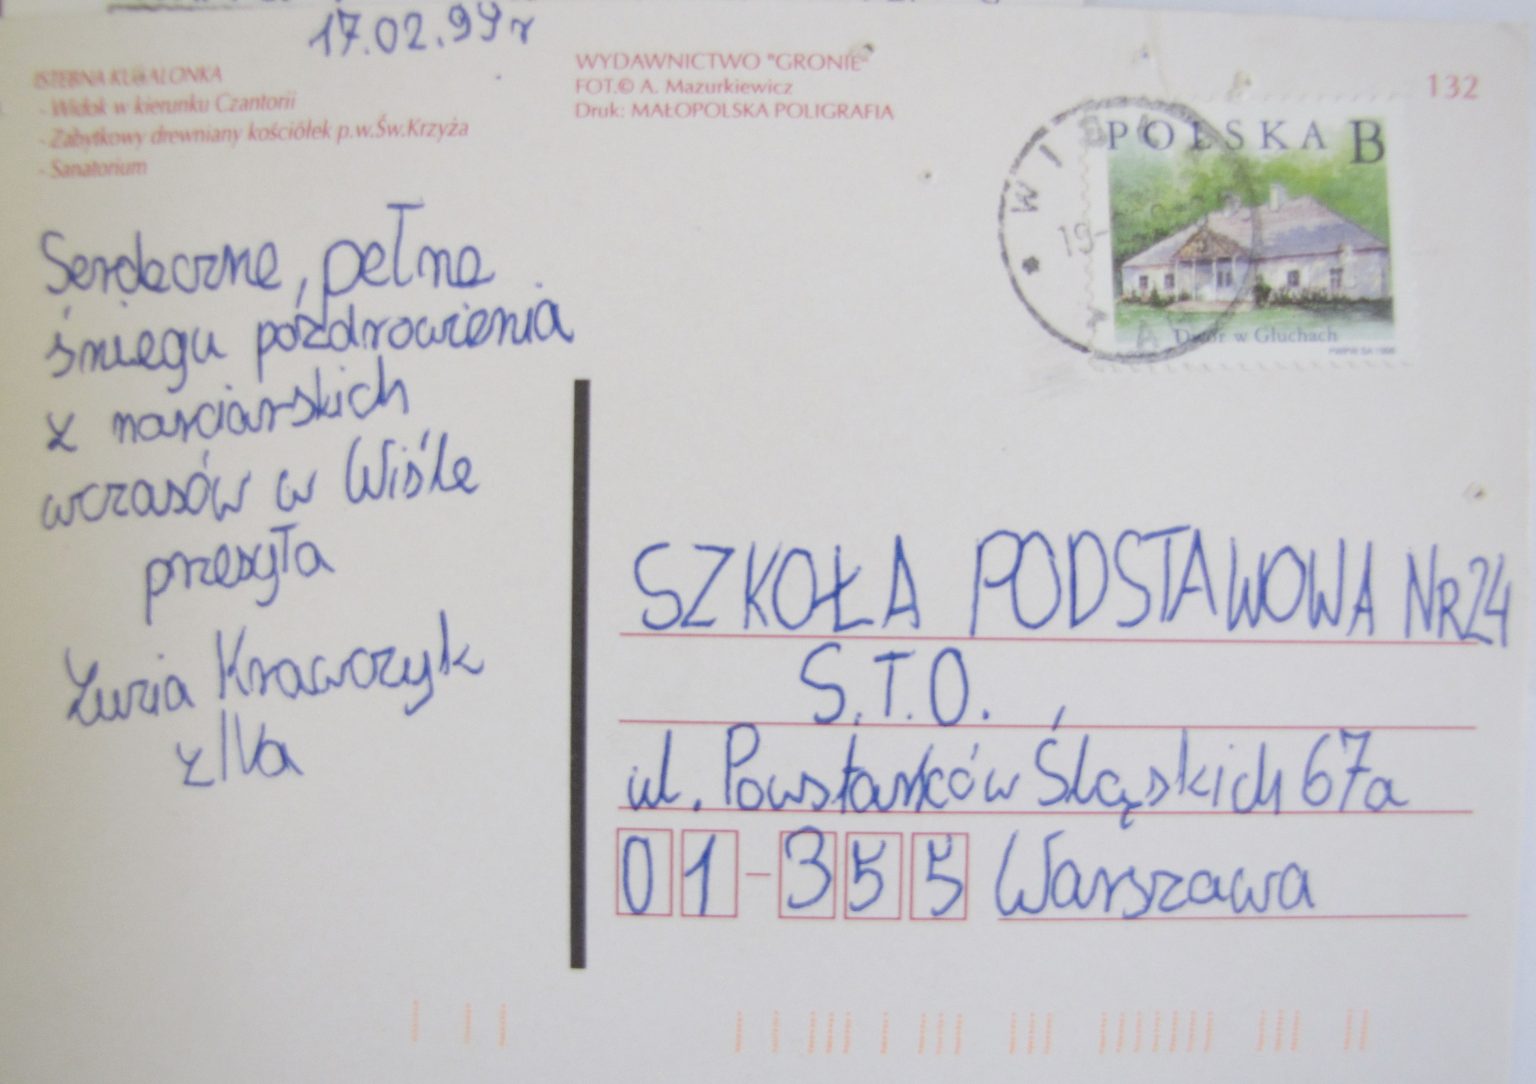 17.02.99r
ISTEBNA KUBALONKA
- Widok w kierunku Czantorii
- Zabytkowy drewniany kościółek p.w.Św.Krzyża
- Sanatorium
WYDAWNICTWO "GRONIE"
FOT.© A. Mazurkiewicz
Druk: MAŁOPOLSKA POLIGRAFIA
132
POLSKA B
Dwór w Głuchach
WISŁA
19-
Serdeczne, pełne
śniegu pozdrowienia
z narciarskich
wczasów w Wiśle
przesyła
Zuzia Krawczyk
z IVa
SZKOŁA PODSTAWOWA NR 24
S.T.O.
ul. Powstańców Śląskich 67a
01-355 Warszawa